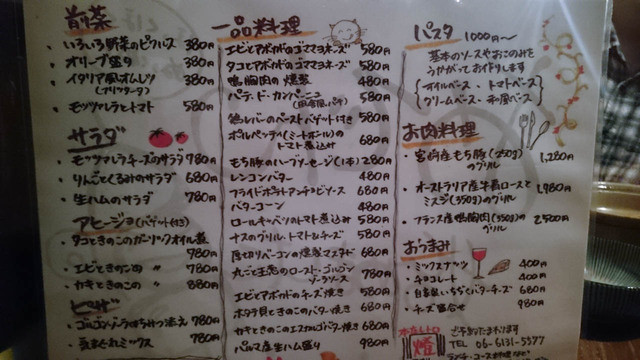 前菜
・いろいろ野菜のピクルス 380円
・オリーブ盛り 380円
・イタリア風オムレツ 380円
(フリッタータ)
・モッツァレラとトマト 580円
サラダ
・モッツァレラチーズのサラダ 780円
・りんごとくるみのサラダ 680円
・生ハムのサラダ 780円
アヒージョ(バゲット付き)
・タコときのこのガーリックオイル煮
780円
・エビときのこの 〃 780円
・カキときのこの 〃 880円
ピザ
・ゴルゴンゾーラはちみつ添え 780円
・気まぐれミックス 780円
一品料理
エビとアボカドのゴママヨネーズ 580円
タコとアボカドのゴママヨネーズ 580円
鴨胸肉の燻製 480円
パテ・ド・カンパーニュ 580円
(田舎風パテ)
鶏レバーのペーストバゲット付き 580円
ポルペッティ(ミートボール)の
トマト煮込み 680円
もち豚のハーブソーセージ(1本) 280円
レンコンバター 480円
フライドポテトアンチョビソース 680円
バターコーン 480円
ロールキャベツのトマト煮込み 580円
ナスのグリル、トマト&チーズ 580円
厚切りベーコンの燻製マスタード 680円
丸ごと玉ねぎのロースト・ゴルゴン
ゾーラソース 780円
エビとアボカドのチーズ焼き 580円
ホタテ貝ときのこのバター焼き 680円
カキときのこのエスカルゴバター焼き 680円
パルマ産生ハム盛り 980円
パスタ 1000円〜
基本のソースやおこのみを
うかがってお作りします
オイルベース・トマトベース
クリームベース・和風ベース
お肉料理
・宮崎産もち豚(250g)
のグリル 1,280円
・オーストラリア産牛肩ロースと
ミスジ(350g)のグリル 1,980円
・フランス産鴨胸肉(350g)の
グリル 2,500円
おつまみ
・ミックスナッツ 400円
・チョコレート 400円
・自家製いちぢくバターチーズ 680円
・チーズ盛合せ 980円
燈
ご予約たまわります
TEL 06-6131-5577